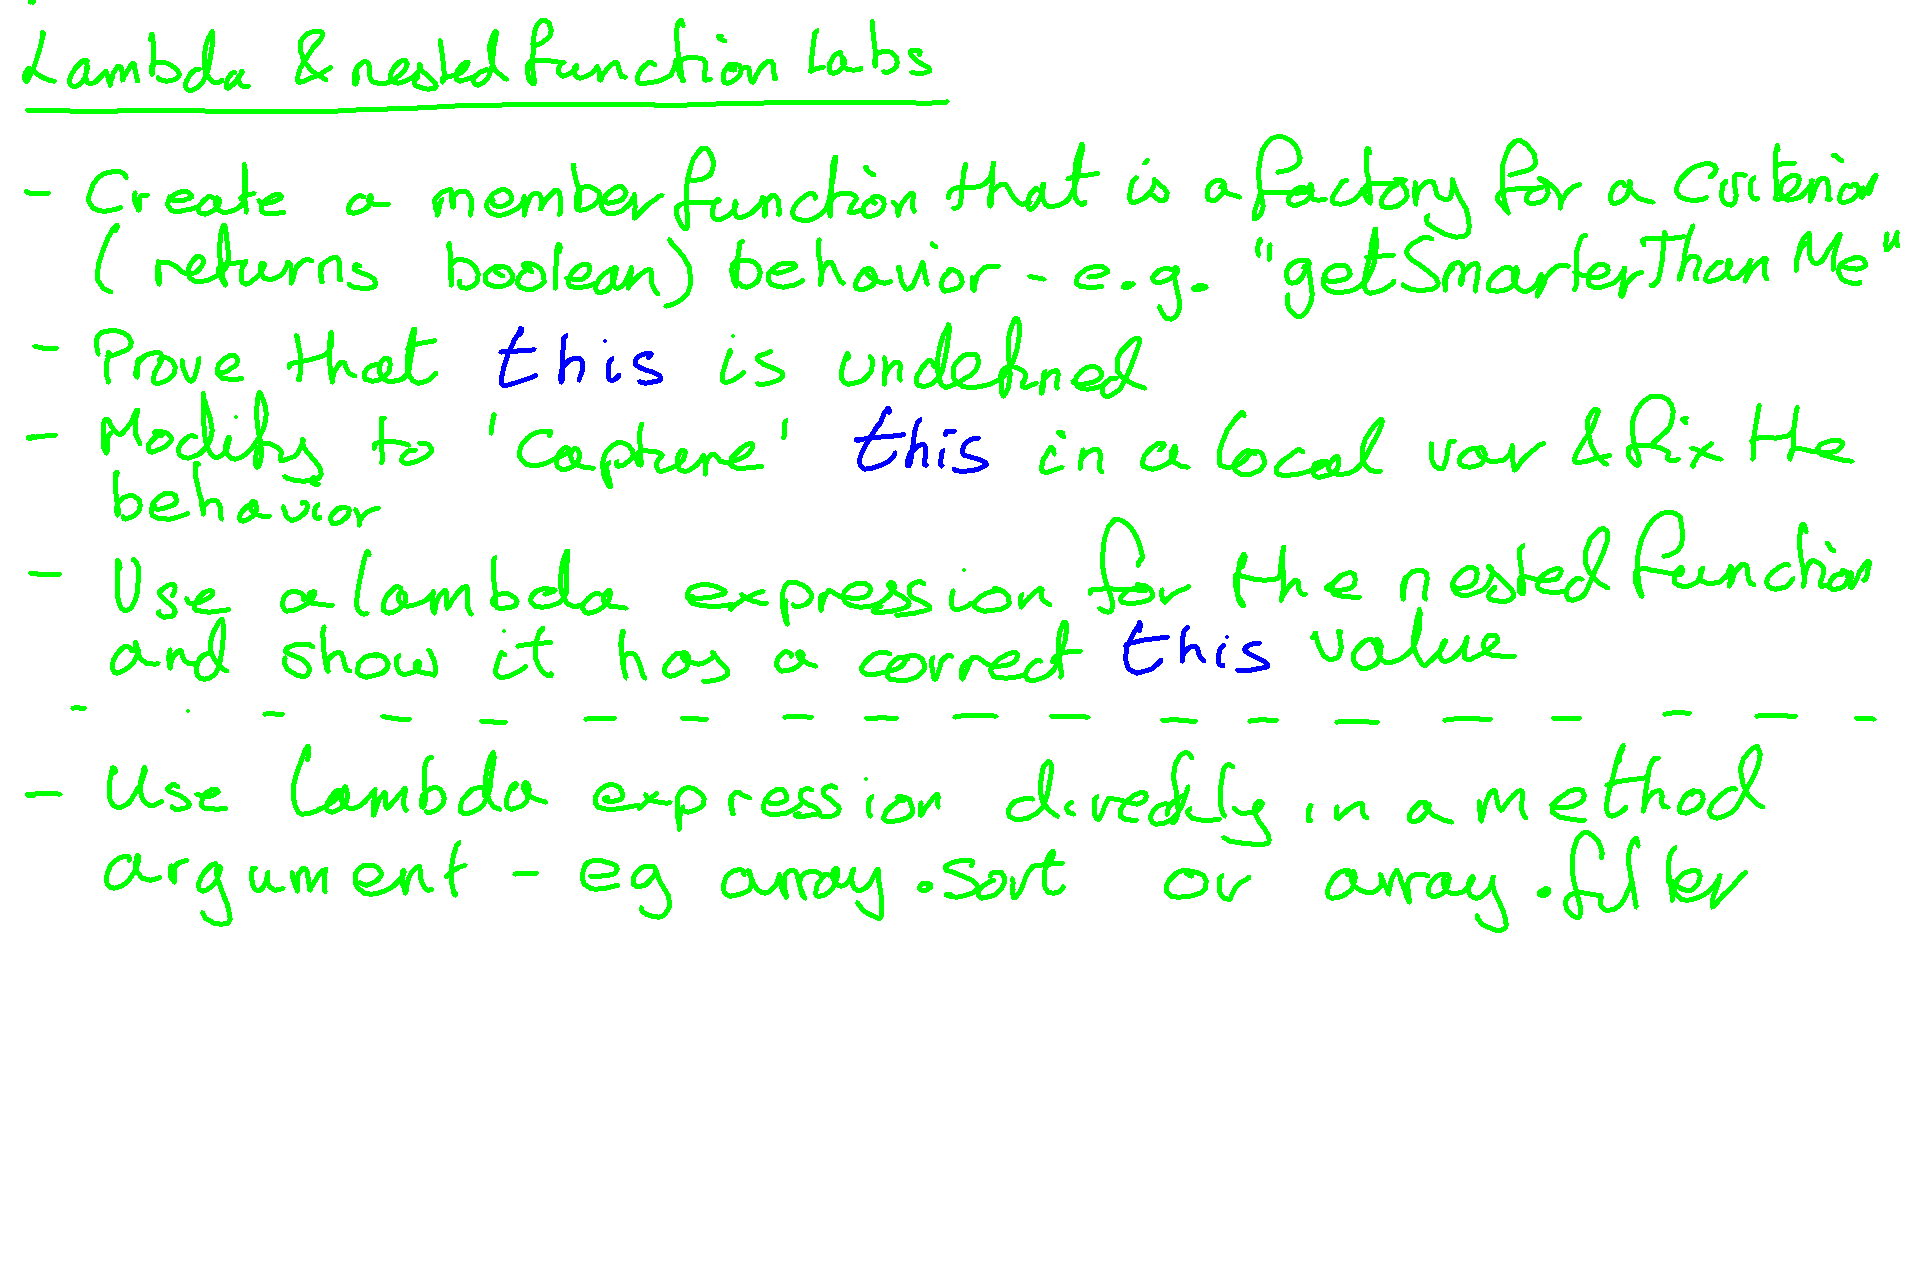 Lambda & nested function labs
- Create a member function that is a factory for a Criterion
(returns boolean) behavior - e.g. "getSmarterThanMe"
- Prove that this is undefined
- Modify to 'capture' this in a local var & fix the
behavior
- Use a lambda expression for the nested function
and show it has a correct this value
- Use lambda expression directly in a method
argument - eg array.sort or array.filter